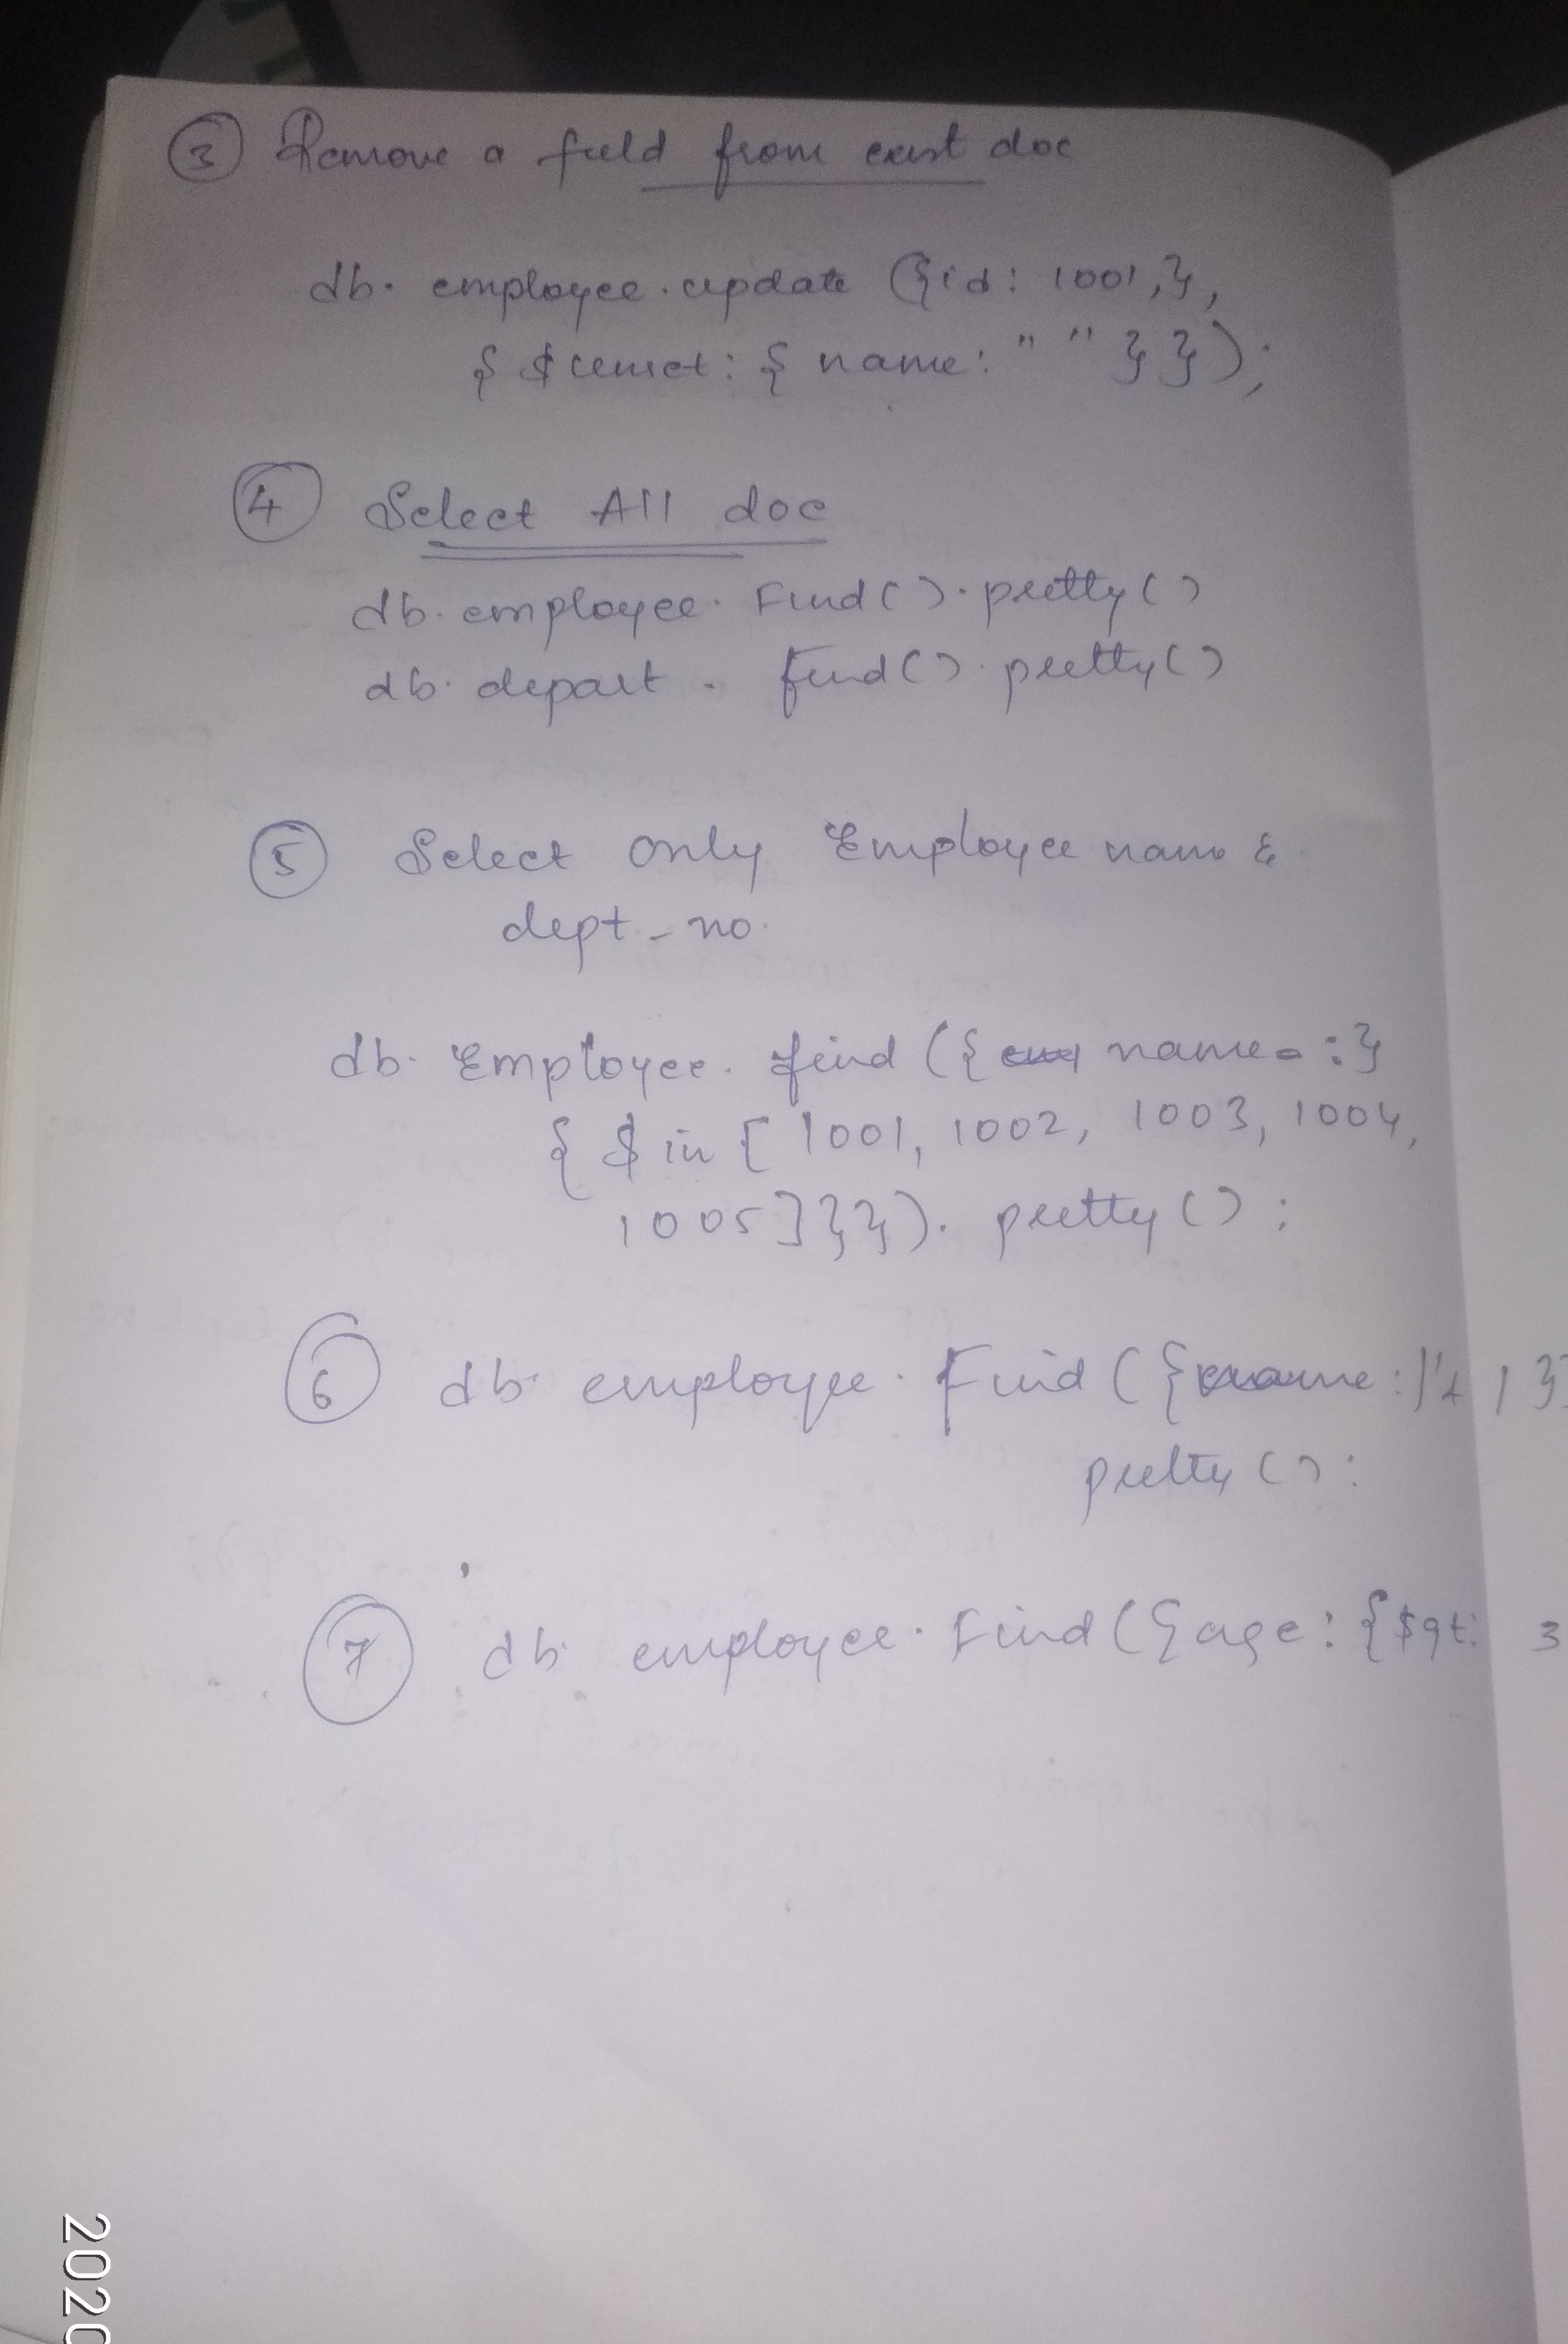 3 Remove a field from exist doc
db. employee.update ({id: 1001,},
{ $unset: { name: " " } });
4 Select All doc
db. employee. Find().pretty()
db. depart . find().pretty()
5 Select only Employee name &
dept_no.
db. Employee. find ({ name :}
{ $in [ 1001, 1002, 1003, 1004,
1005]}}). pretty() ;
6 db. employee. Find ({name:
pretty():
7 db employee. Find ({age: {$gt: 3
2020